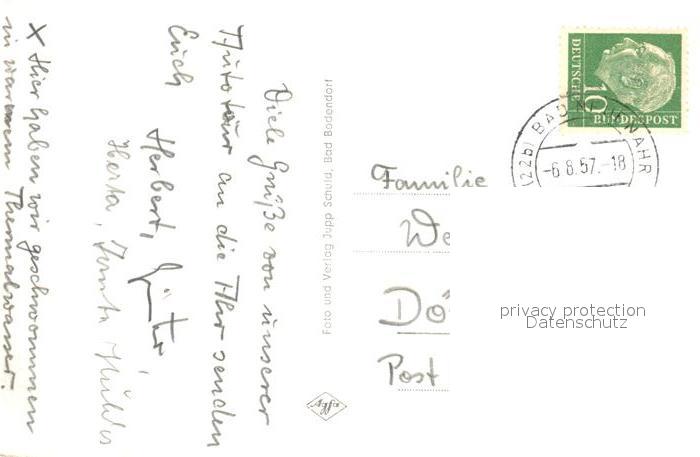 Viele Grüße von unserer
Autotour an die Ahr senden
Euch
Herbert, Günter
Herta, Tante
X Hier haben wir geschwommen
in warmem Thermalwasser.
Foto und Verlag Jupp Schulz, Bad Bodendorf
Agfa
DEUTSCHE
BUNDESPOST
10
(22b) BAD NEUENAHR
-6.8.57.-18
Familie
We
Dö
Post
privacy protection
Datenschutz